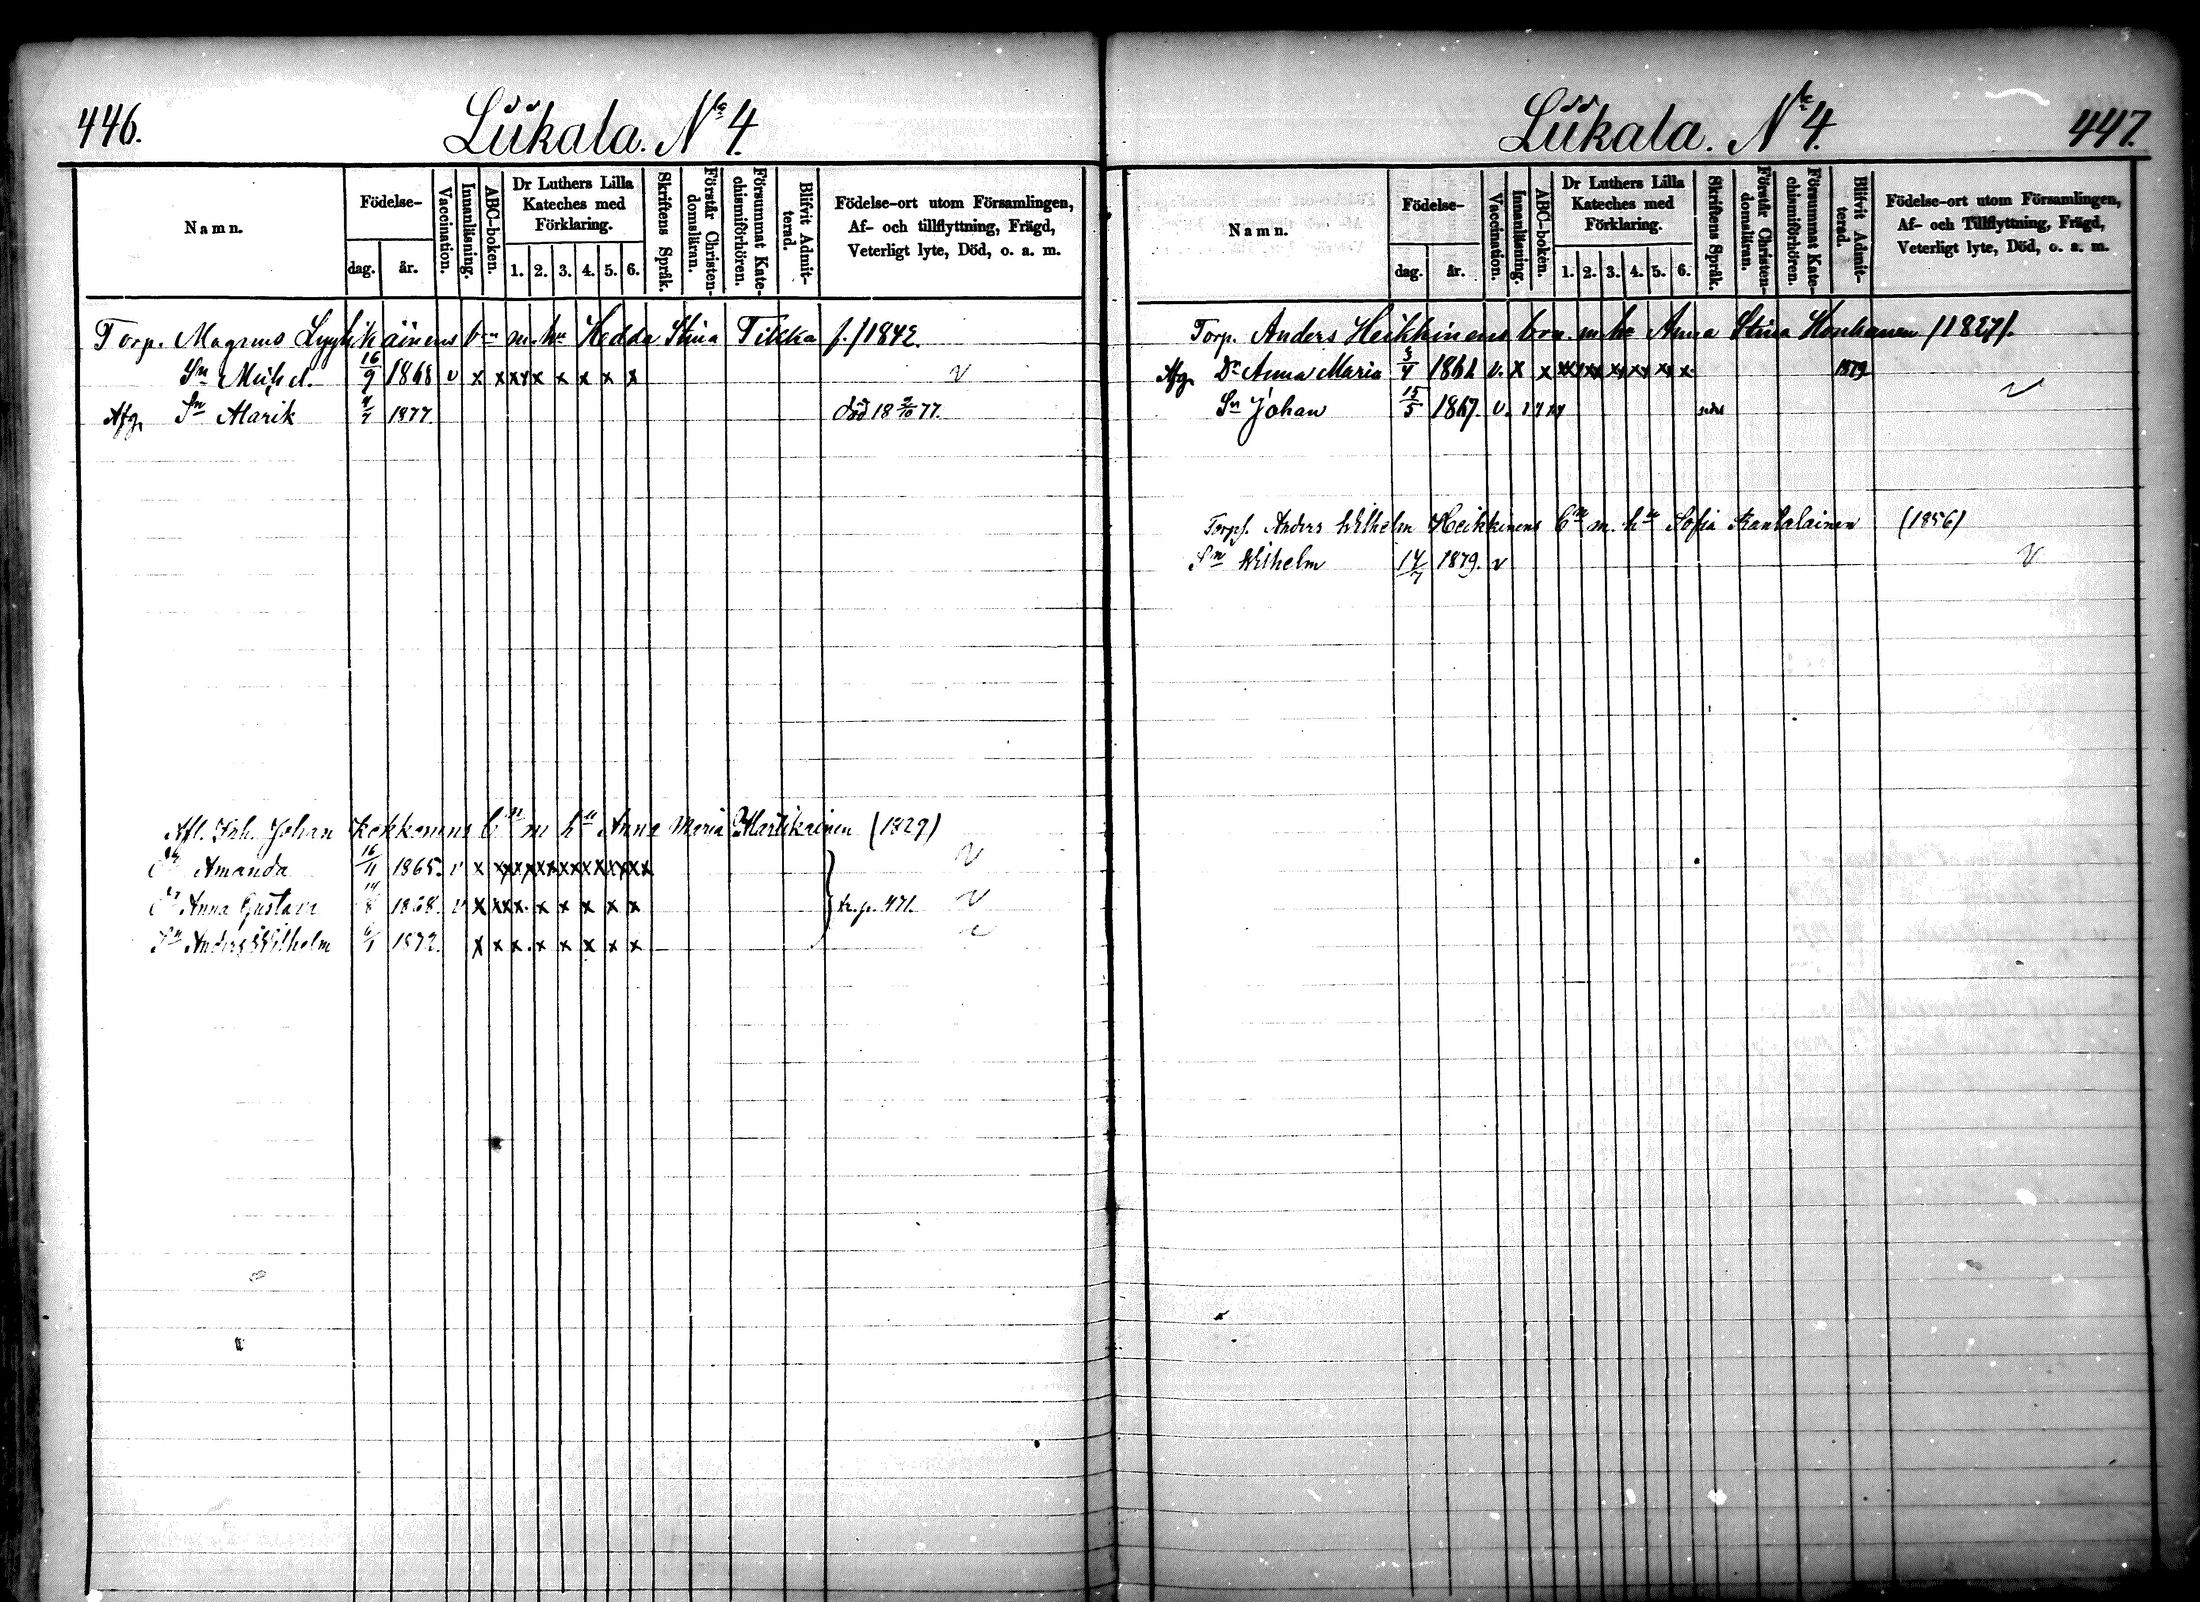 446.
Liikala. No 4.
Namn.
Födelse-
dag.
år.
Vaccination.
Innanläsning.
ABC-boken.
Dr Luthers Lilla
Kateches med
Förklaring.
1. 2. 3. 4. 5. 6.
Skriftens Språk.
Förstår Christen-
domsläran.
Försummat Kate-
chismiförhören.
Blifvit Admit-
terad.
Födelse-ort utom Församlingen,
Af- och tillflyttning, Frägd,
Veterligt lyte, Död, o. a. m.
Torp. Magnus Lyytikäinens bn m. hu Hedda Stina Tikka f. /1842.
Sn Mich el. 16/9 1868 v x x xx x x x x x v
Afg. Sn Alarik 1877. död 18 77.
Afl. Johan Kokkonens bn m hu Anna Maria Martikainen (1829)
Dr Amanda 16/11 1865. v x xx xx xx xx xx xx xx v
Dr Anna Gustava 1868. v x xx x. x x x x x tr. p. 471. v
Sn Anders Wilhelm 1872. x x x. x x x x x
447.
Liikala. No 4.
Namn.
Födelse-
dag.
år.
Vaccination.
Innanläsning.
ABC-boken.
Dr Luthers Lilla
Kateches med
Förklaring.
1. 2. 3. 4. 5. 6.
Skriftens Språk.
Förstår Christen-
domsläran.
Försummat Kate-
chismiförhören.
Blifvit Admit-
terad.
Födelse-ort utom Församlingen,
Af- och Tillflyttning, Frägd,
Veterligt lyte, Död, o. a. m.
Torp. Anders Heikkinens brn m hu Anna Stina Honkanen /1827/.
Afg. Dr Anna Maria 3/4 1861 v. x x xx xx xx xx xx x 1879
Sn Johan 15/5 1867. v. v
Torpf. Anders Wilhelm Heikkinens bn m. hu Sofia Rantalainen (1856)
Sn Wilhelm 14/7 1879. v v